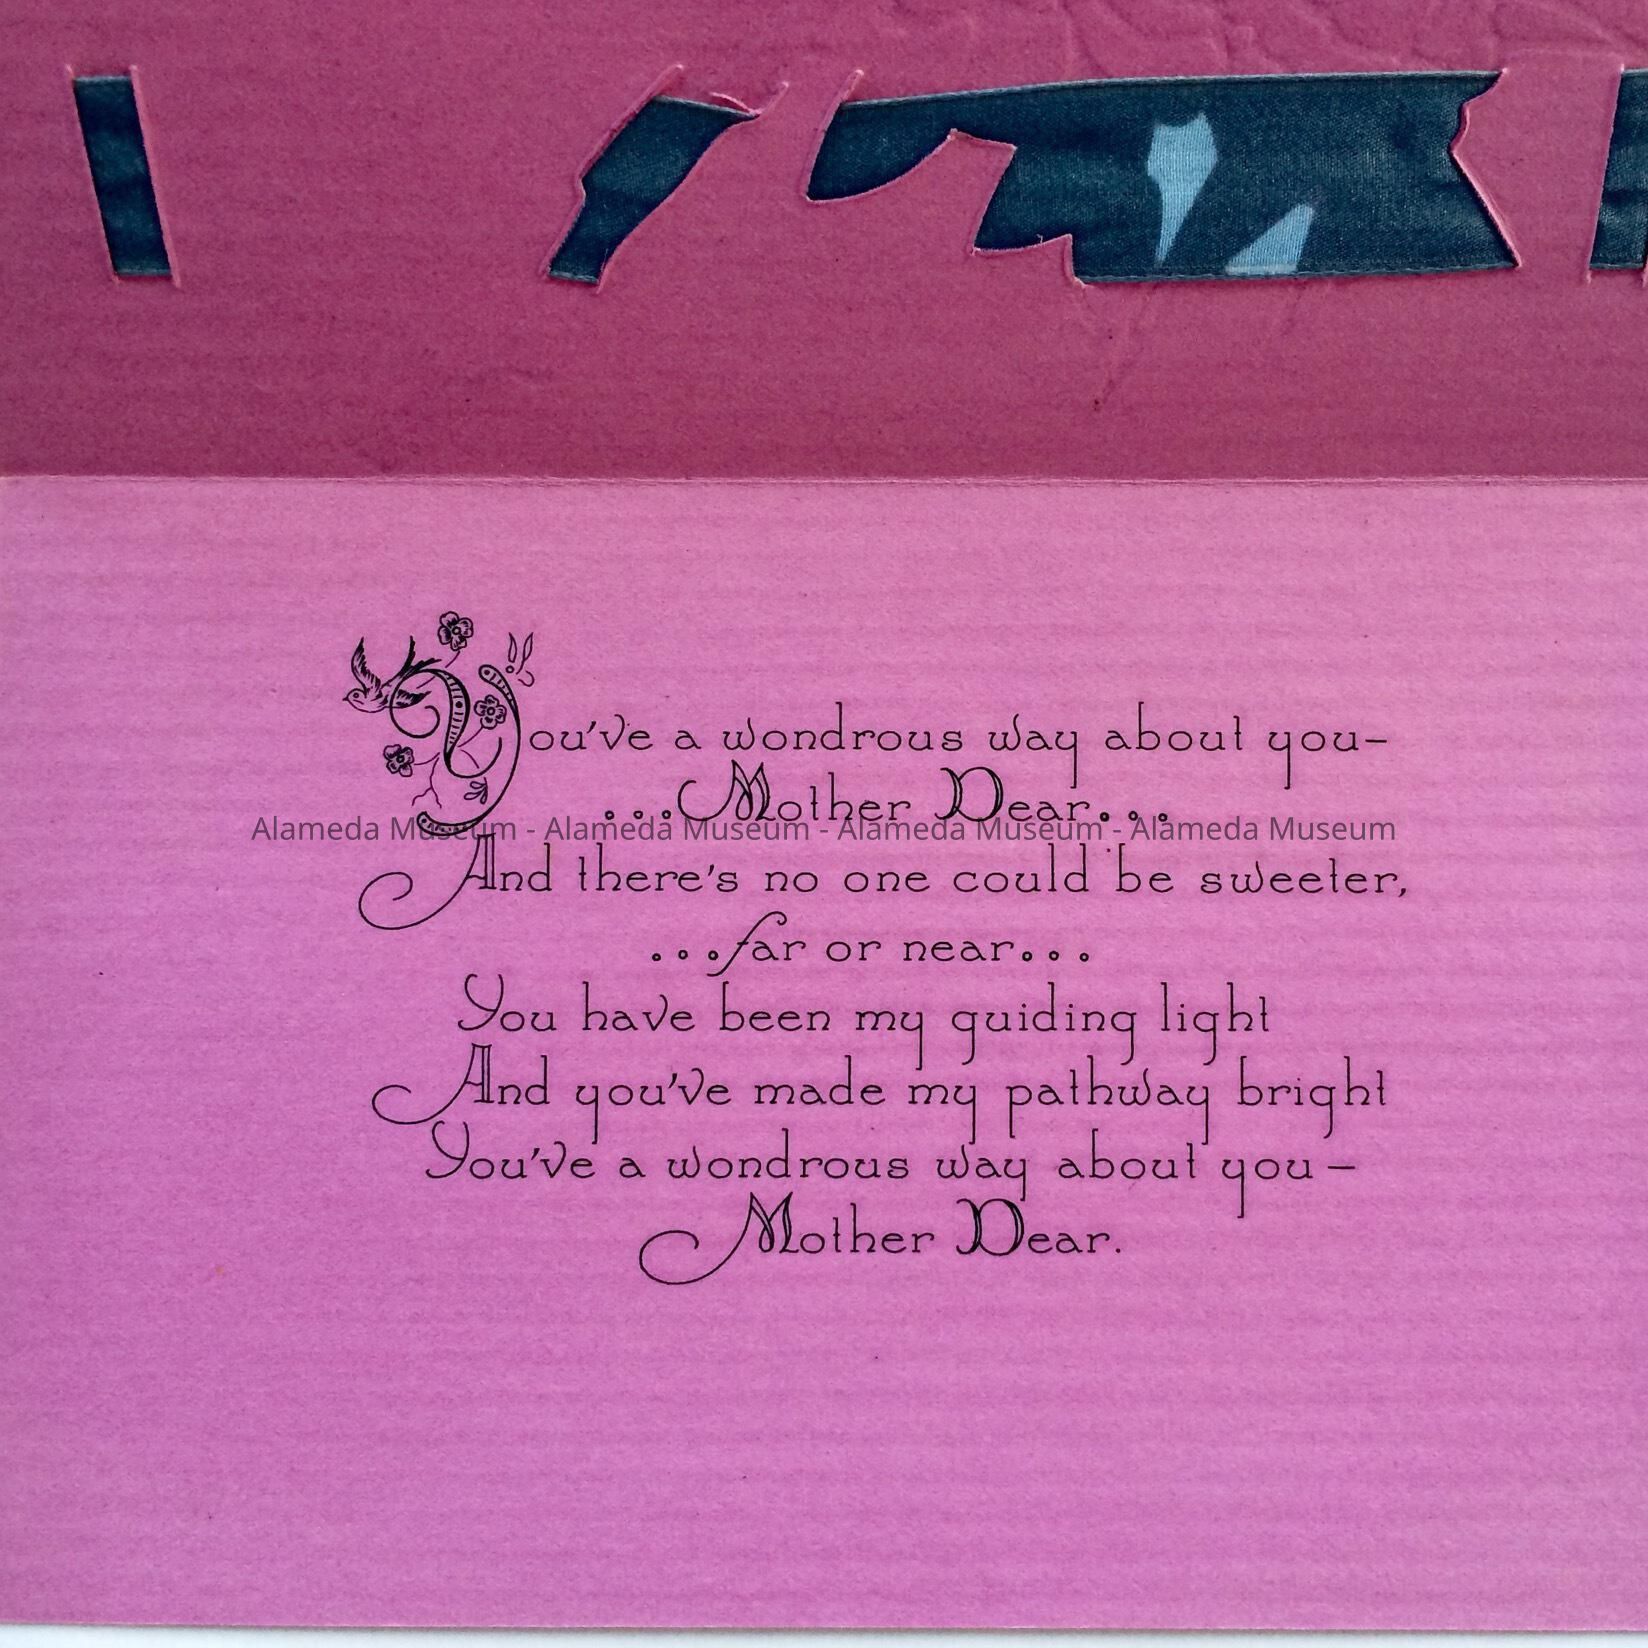 You've a wondrous way about you–
...Mother Dear...
Alameda Museum - Alameda Museum - Alameda Museum - Alameda Museum
And there's no one could be sweeter,
...far or near...
You have been my guiding light
And you've made my pathway bright
You've a wondrous way about you–
Mother Dear.